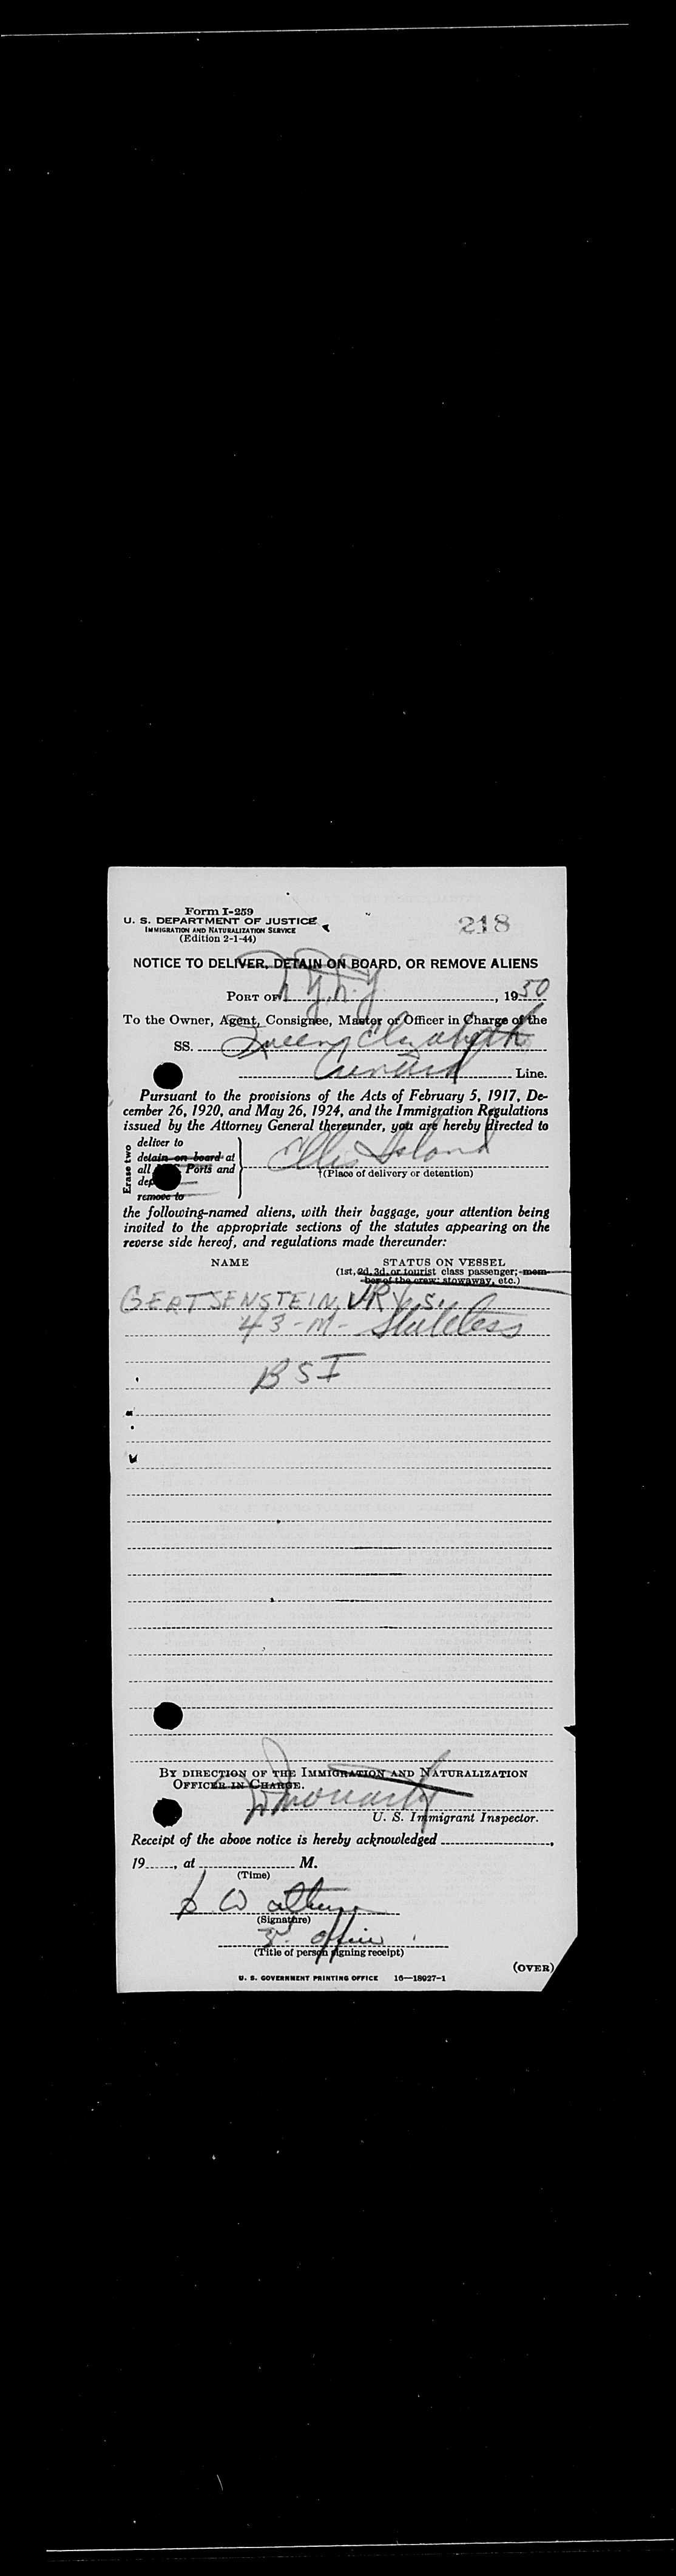 Form I-259
U. S. DEPARTMENT OF JUSTICE
IMMIGRATION AND NATURALIZATION SERVICE
(Edition 2-1-44)
218
NOTICE TO DELIVER, DETAIN ON BOARD, OR REMOVE ALIENS
PORT OF N.Y.N.Y, 1950
To the Owner, Agent, Consignee, Master or Officer in Charge of the
SS. Queen Elizabeth
Cunard Line.
Pursuant to the provisions of the Acts of February 5, 1917, De-
cember 26, 1920, and May 26, 1924, and the Immigration Regulations
issued by the Attorney General thereunder, you are hereby directed to
Erase two
deliver to
detain on board at
all Ports and
remove to
Ellis Island
†(Place of delivery or detention)
the following-named aliens, with their baggage, your attention being
invited to the appropriate sections of the statutes appearing on the
reverse side hereof, and regulations made thereunder:
NAME STATUS ON VESSEL
(1st, 2d, 3d, or tourist class passenger; mem-
ber of the crew; stowaway, etc.)
GERTSENSTEIN, URY. S.
43-M- Stateless
BSI
BY DIRECTION OF THE IMMIGRATION AND NATURALIZATION
OFFICER IN CHARGE.
U. S. Immigrant Inspector.
Receipt of the above notice is hereby acknowledged
19, at M.
(Time)
(Signature)
(Title of person signing receipt)
(OVER)
U. S. GOVERNMENT PRINTING OFFICE 16—18027-1